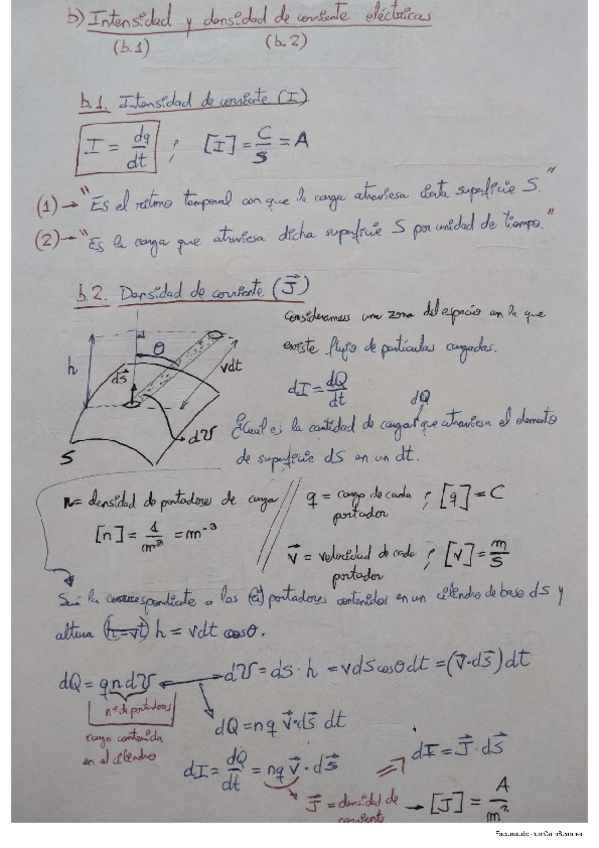 b) Intensidad y densidad de corriente eléctricas
(b.1) (b.2)
b.1. Intensidad de corriente (I)
I = dq/dt ; [I] = C/s = A
(1) → "Es el ritmo temporal con que la carga atraviesa cierta superficie S."
(2) → "Es la carga que atraviesa dicha superficie S por unidad de tiempo."
b.2. Densidad de corriente (J⃗)
Consideramos una zona del espacio en la que
existe flujo de partículas cargadas.
h θ vdt dS⃗ dV S
dI = dQ/dt dQ
¿Cuál es la cantidad de cargas que atraviesa el elemento
de superficie dS en un dt.
n = densidad de portadores de carga
[n] = 1/m³ = m⁻³
q = carga de cada portador ; [q] = C
v⃗ = velocidad de cada portador ; [v] = m/s
Será la correspondiente a los portadores contenidos en un cilindro de base dS y
altura (h=vt) h = vdt cosθ.
dQ = q n dV ↔ dV = dS · h = v dS cosθ dt = (v⃗ · dS⃗) dt
nº de portadores
carga contenida
en el cilindro
dQ = nq v⃗ · dS⃗ dt
dI = dQ/dt = nq v⃗ · dS⃗ ⇒ dI = J⃗ · dS⃗
J⃗ = densidad de corriente → [J] = A/m²